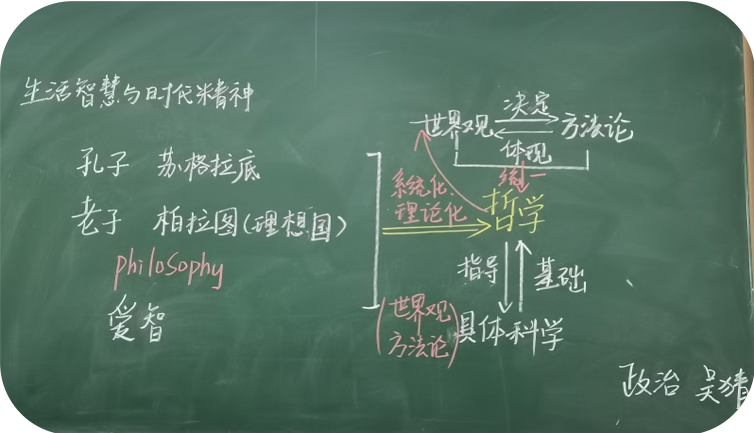 生活智慧与时代精神
孔子 苏格拉底
老子 柏拉图(理想国)
philosophy
爱智
(世界观
方法论)
系统化、
理论化
世界观 决定 方法论
体现
统一
哲学
指导 基础
具体科学
政治 吴